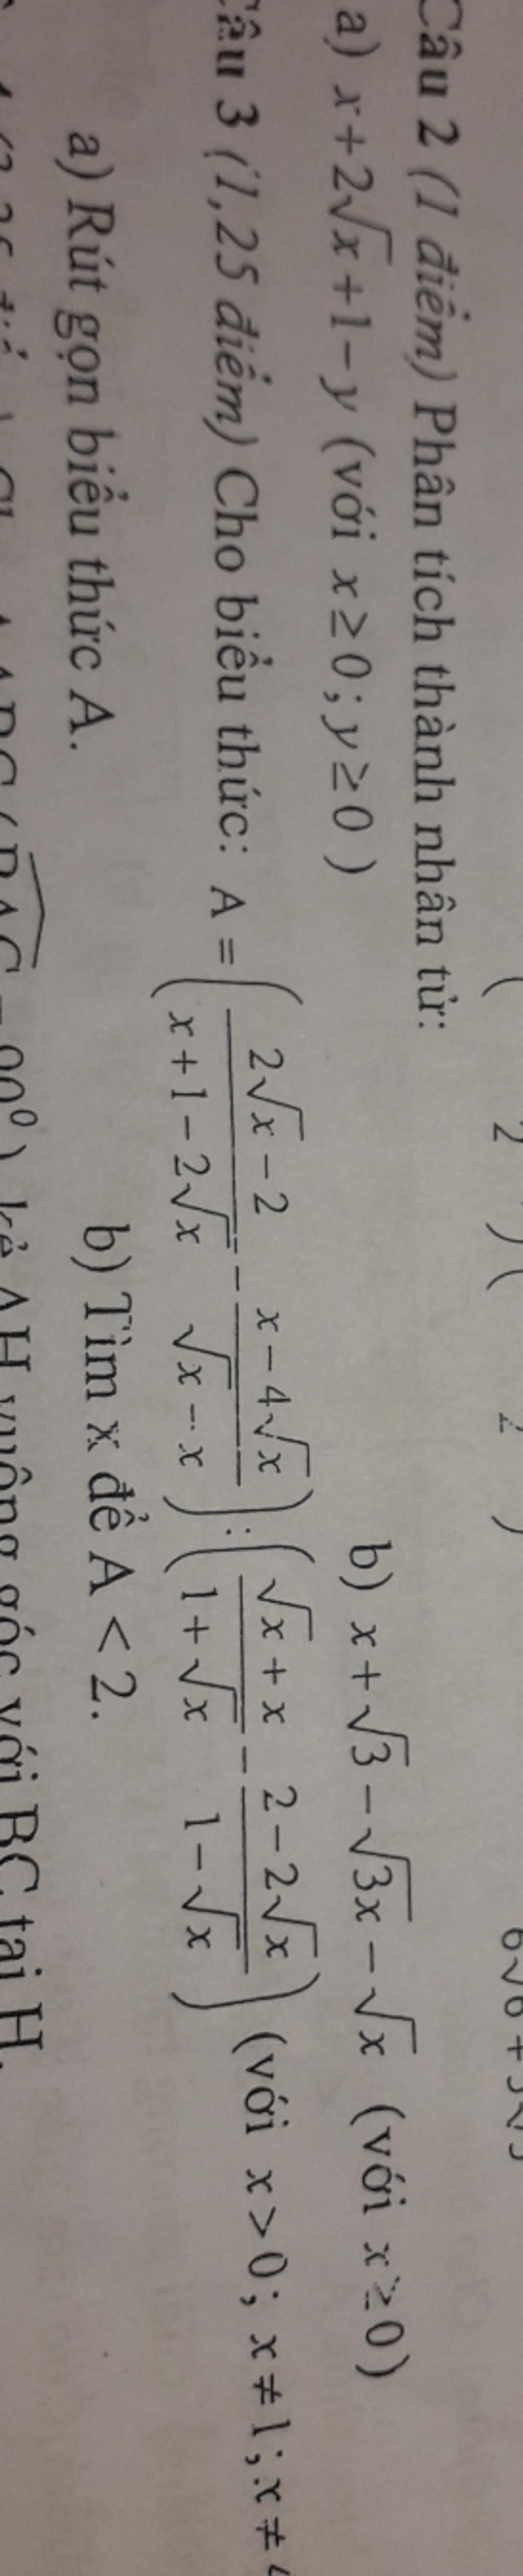 Câu 2 (1 điểm) Phân tích thành nhân tử:
a) x+2√x+1−y (với x≥0; y≥0) b) x+√3−√3x−√x (với x≥0)
Câu 3 (1,25 điểm) Cho biểu thức: A = ((2√x−2)/(x+1−2√x) − (x−4√x)/(√x−x)) : ((√x+x)/(1+√x) − (2−2√x)/(1−√x)) (với x>0; x≠1; x≠
a) Rút gọn biểu thức A. b) Tìm x để A < 2.
kẻ AH vuông góc với BC tại H.